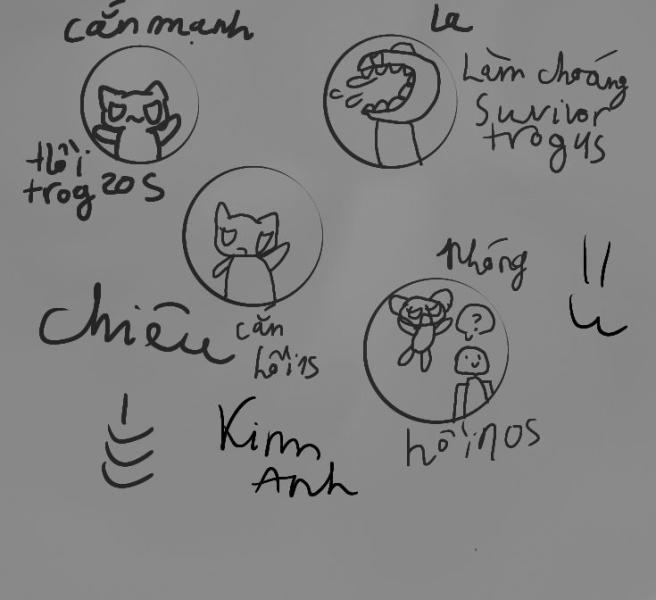 cắn mạnh
La
Làm choáng
Survivor
trog 4s
hồi
trog 20s
Phóng
Chiêu
cắn
hồi 1s
?
Kim
Anh
hồi 10s